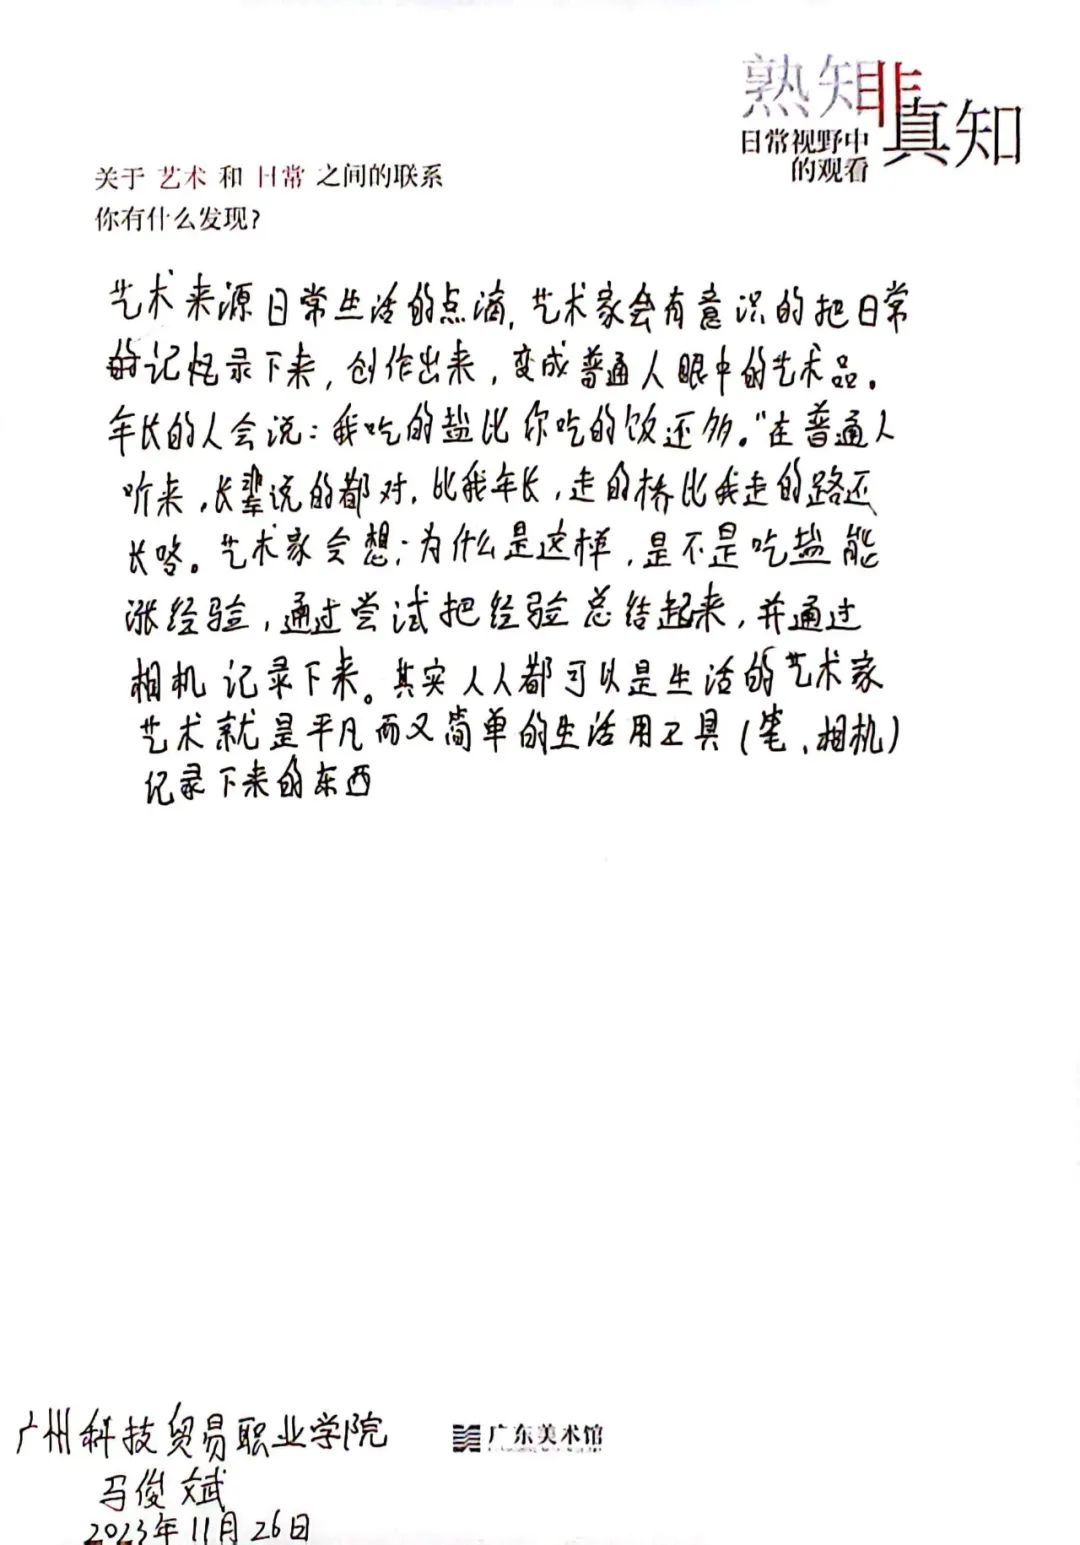 熟知非真知
日常视野中
的观看
关于 艺术 和 日常 之间的联系
你有什么发现?
艺术来源日常生活的点滴,艺术家会有意识的把日常
的记忆录下来,创作出来,变成普通人眼中的艺术品。
年长的人会说:我吃的盐比你吃的饭还多。"在普通人
听来,长辈说的都对,比我年长,走的桥比我走的路还
长咯。艺术家会想:为什么是这样,是不是吃盐能
涨经验,通过尝试把经验总结起来,并通过
相机记录下来。其实人人都可以是生活的艺术家
艺术就是平凡而又简单的生活用工具(笔、相机)
记录下来的东西
广州科技贸易职业学院
广东美术馆
马俊斌
2023年11月26日